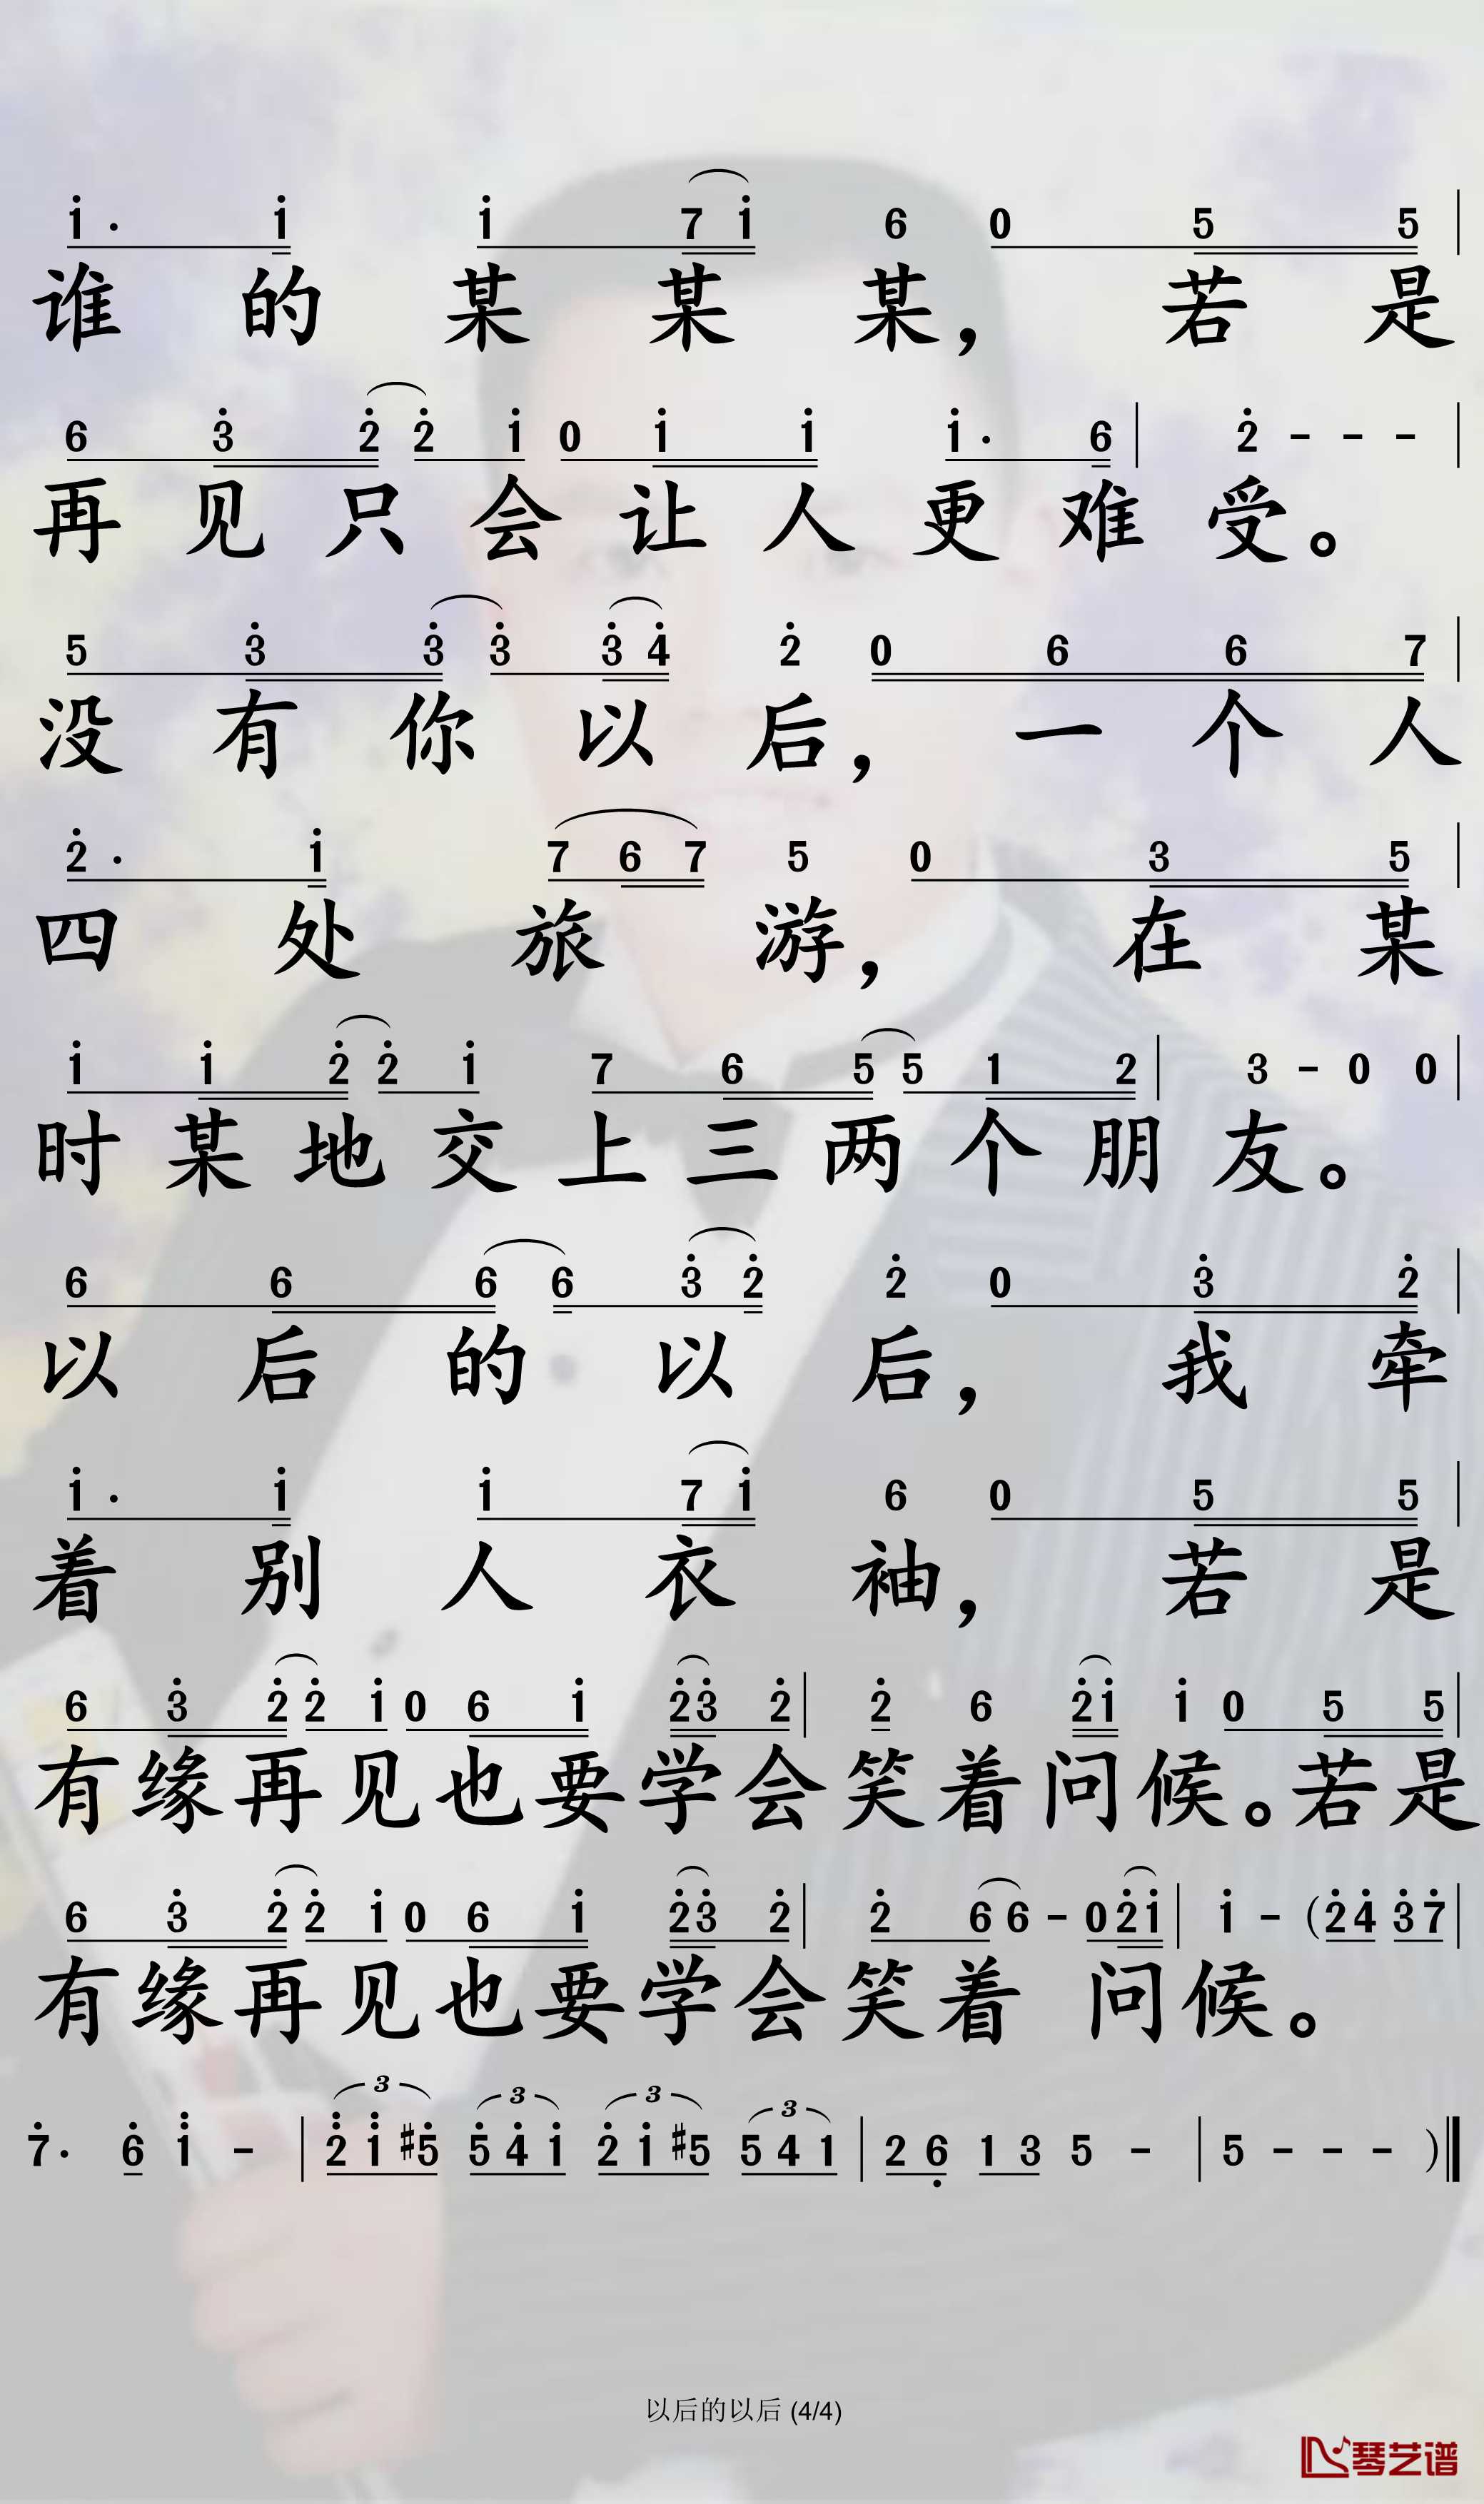 i· i i 7 i 6 0 5 5 |
谁的某某某，若是
6 3 2 2 i 0 i i i· 6 | 2 - - - |
再见只会让人更难受。
5 3 3 3 3 4 2 0 6 6 7 |
没有你以后，一个人
2· i 7 6 7 5 0 3 5 |
四处旅游，在某
i i 2 2 i 7 6 5 5 1 2 | 3 - 0 0 |
时某地交上三两个朋友。
6 6 6 6 3 2 2 0 3 2 |
以后的以后，我牵
i· i i 7 i 6 0 5 5 |
着别人衣袖，若是
6 3 2 2 i 0 6 i 2 3 2 | 2 6 2 i i 0 5 5 |
有缘再见也要学会笑着问候。若是
6 3 2 2 i 0 6 i 2 3 2 | 2 6 6 - 0 2 i | i - (2 4 3 7 |
有缘再见也要学会笑着问候。
3 3 3 3
7· 6 i - | 2 i #5 5 4 i 2 i #5 5 4 1 | 2 6 1 3 5 - | 5 - - - )‖
以后的以后 (4/4)
琴艺谱